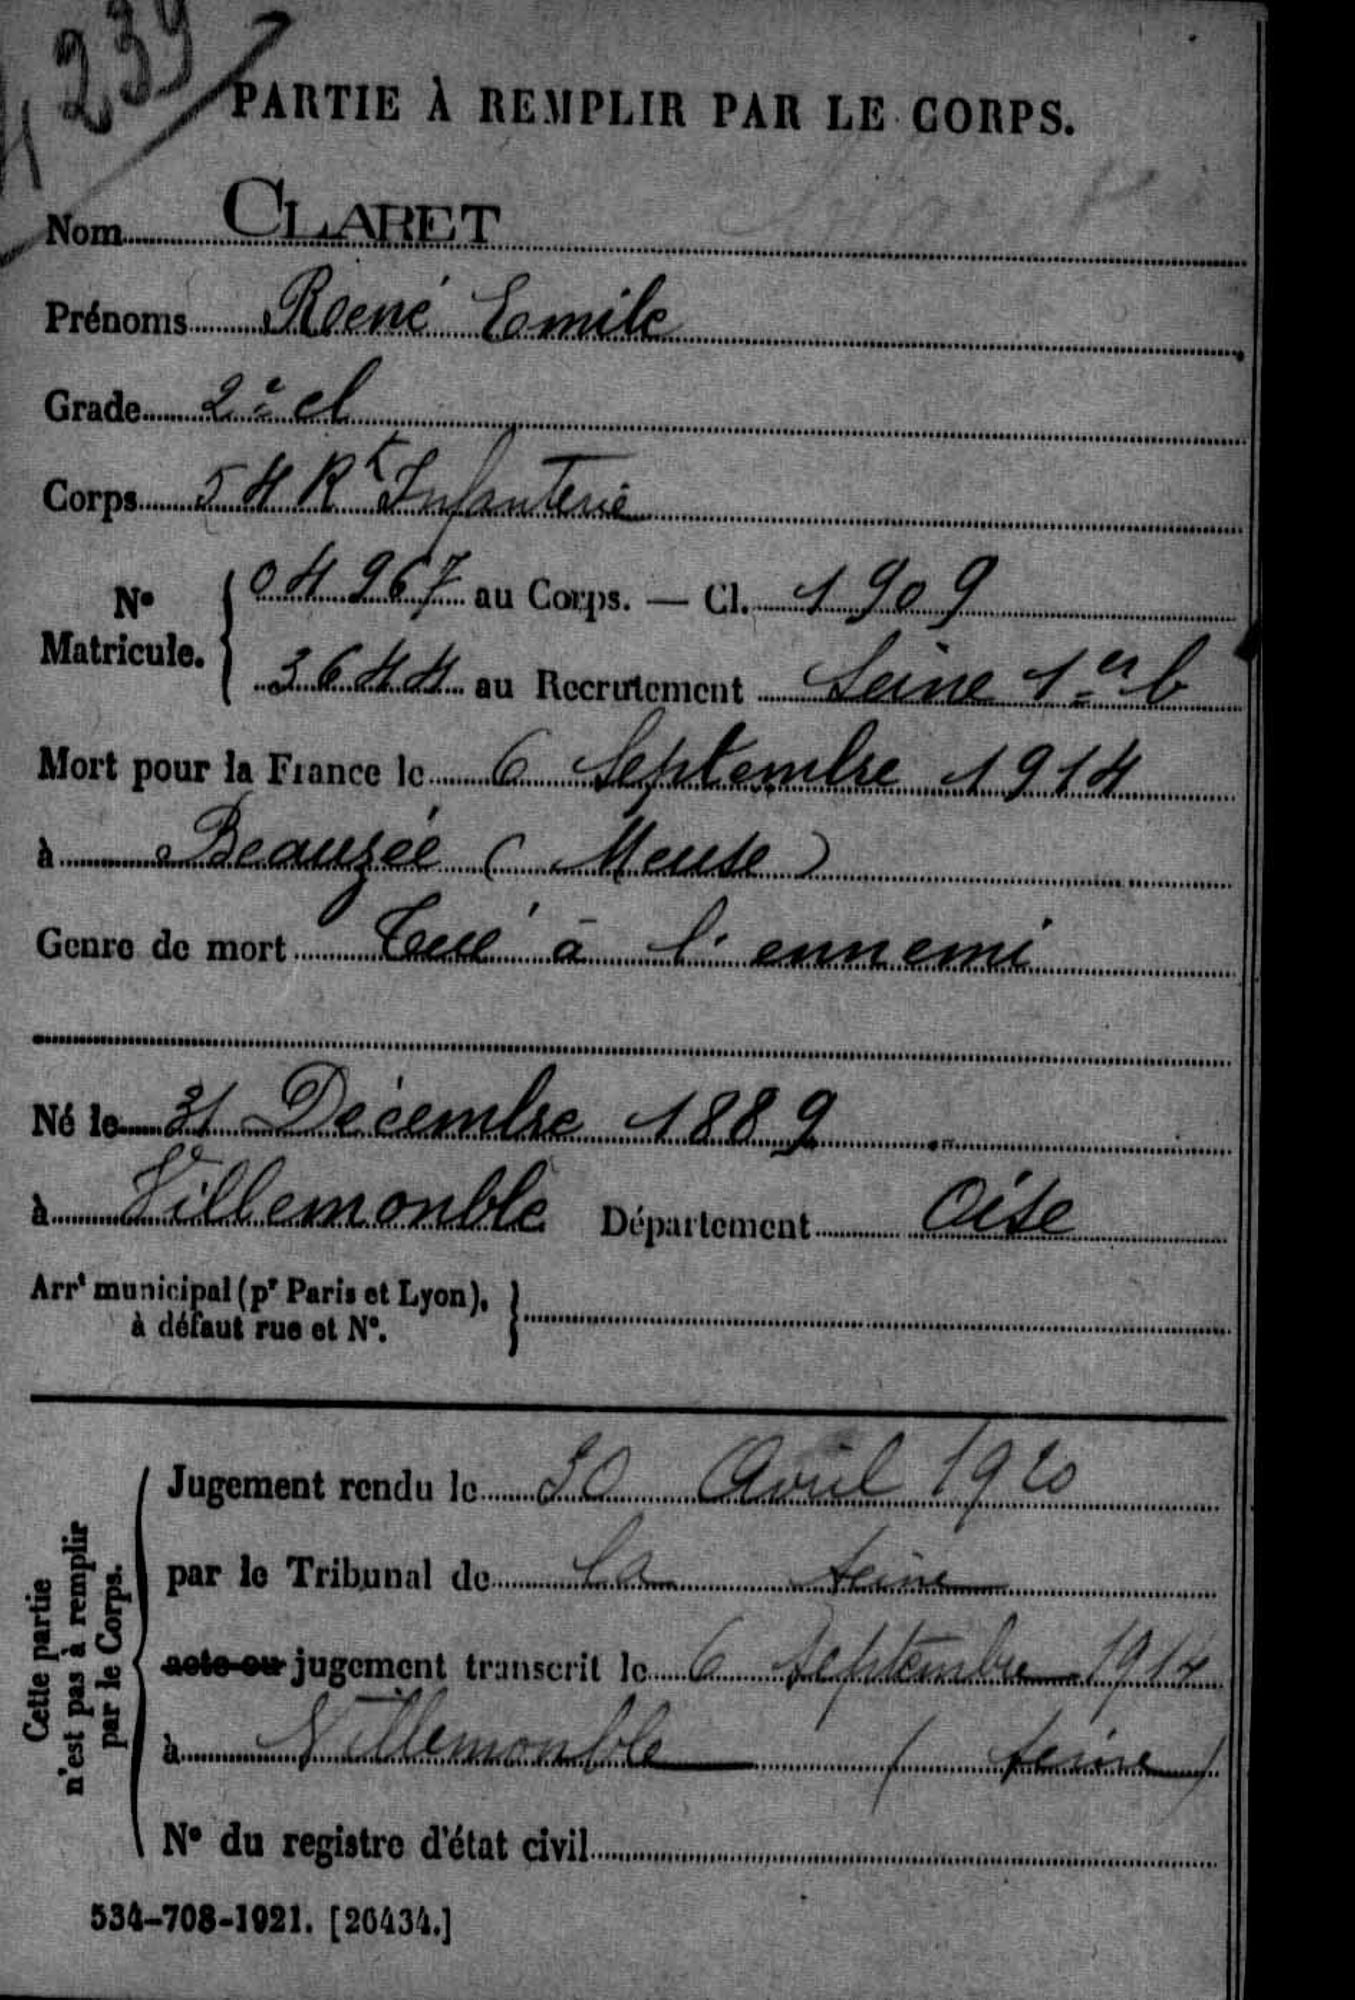 239
PARTIE À REMPLIR PAR LE CORPS.
Nom CLARET
Prénoms René Emile
Grade 2e cl
Corps 54 Rt Infanterie
No Matricule. { 04967 au Corps. — Cl. 1909
3644 au Recrutement Seine 1er b
Mort pour la France le 6 Septembre 1914
à Beauzée (Meuse)
Genre de mort Tué à l'ennemi
Né le 31 Décembre 1889
à Villemonble Département Oise
Arrt municipal (pr Paris et Lyon), à défaut rue et No. }
Cette partie n'est pas à remplir par le Corps.
Jugement rendu le 30 Avril 1920
par le Tribunal de la Seine
acte ou jugement transcrit le 6 Septembre 1914
à Villemonble (Seine)
No du registre d'état civil
534-708-1921. [26434.]